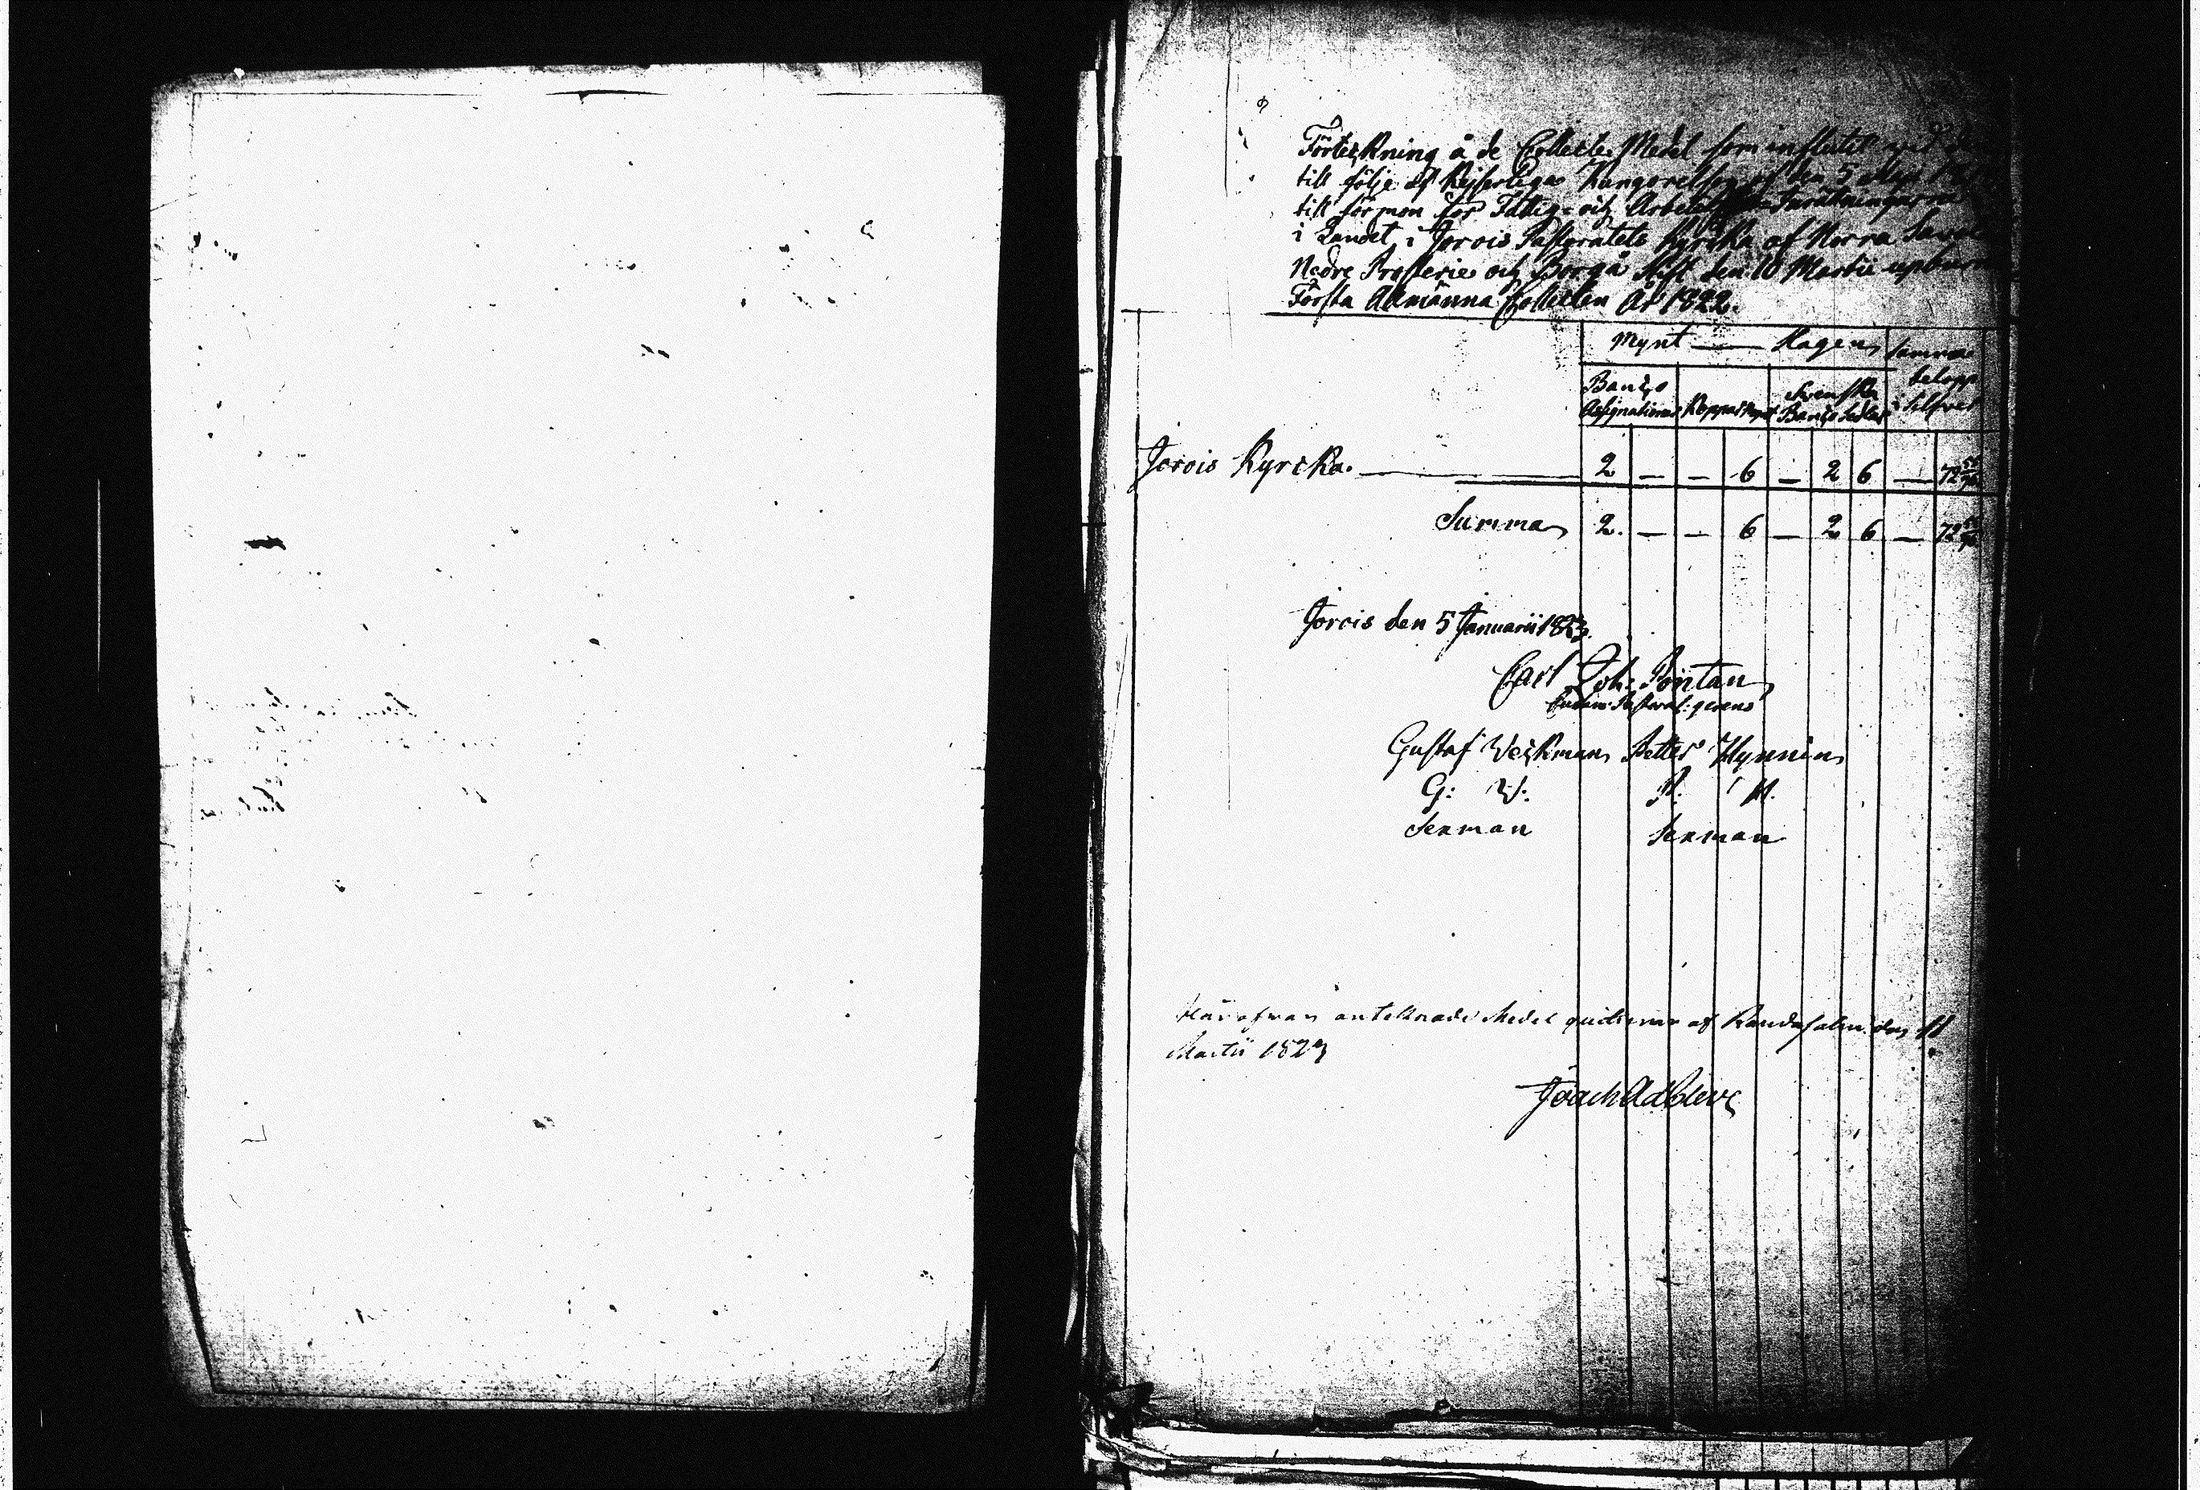 Förteckning å de Collecte Medel som influtit vid
till följe af Kejserliga Kungörelsen af den 5 Maji
till förmon för Fattig- och Arbets Inrättningarne
i Landet, i Jorois Pastoratets Kyrcka af Norra Savol
Nedre Prosterie och Borgå Stift den 10 Martii upburne
Första Allmänna Collecten År 1822.
Mynt — Slagen Samma
Banco Assignationer Koppar Mynt Svenska Banco Sedlar belopp i silfver
Jorois Kyrcka. 2 — — 6 — 2 6 — 72
Summa 2. — — 6 — 2 6 — 72
Jorois den 5 Januarii 1823.
Carl Joh: Pontan
Pastoral: gerens
Gustaf Weckman Petter Hynnin
G: W: P: H.
Sexman Sexman
Härofvan antecknade Medel quitteras af Randasalmi den 11
Martii 1823
Joach Ad Cleve